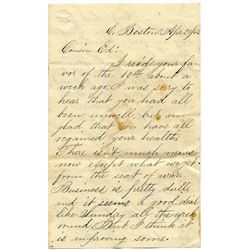 E. Boston Apr 29/62
Cousin Ed:
I rec'd your fa-
vor of the 19th about a
week ago. I was sorry to
hear that you had all
been unwell, but am
glad that you have all
regained your health.
There isn't much news
now except what we get
from the seat of war.
Business is pretty dull
and it seems a good deal
like Sunday all the
round But I think it
is improving some.